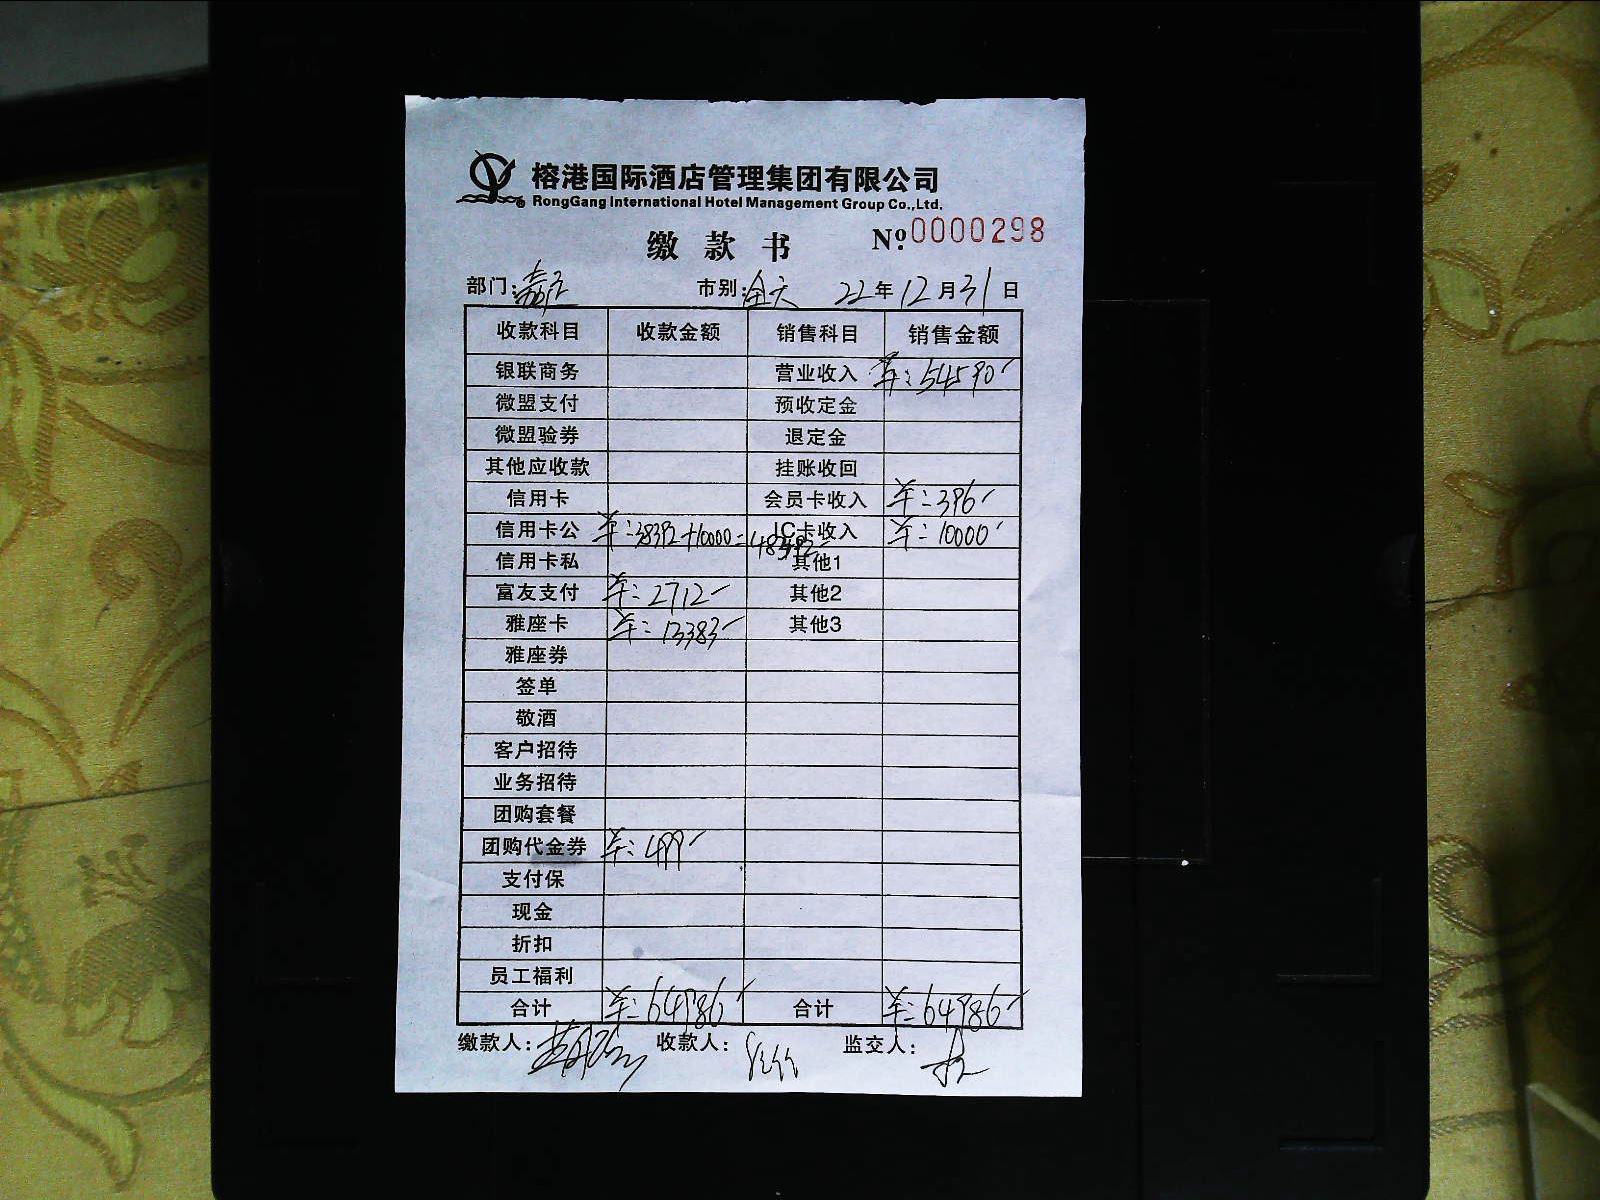 榕港国际酒店管理集团有限公司
RongGang International Hotel Management Group Co.,Ltd.
缴款书 Nº:0000298
部门: 市别:全天 22年12月31日
收款科目 收款金额 销售科目 销售金额
银联商务 营业收入 羊:54590
微盟支付 预收定金
微盟验券 退定金
其他应收款 挂账收回
信用卡 会员卡收入 羊:396
信用卡公 羊:38392+10000=48392 IC卡收入 羊:10000
信用卡私 其他1
富友支付 羊:2712 其他2
雅座卡 羊:13383 其他3
雅座券
签单
敬酒
客户招待
业务招待
团购套餐
团购代金券 羊:499
支付保
现金
折扣
员工福利
合计 羊:64986 合计 羊:64986
缴款人: 收款人: 监交人: